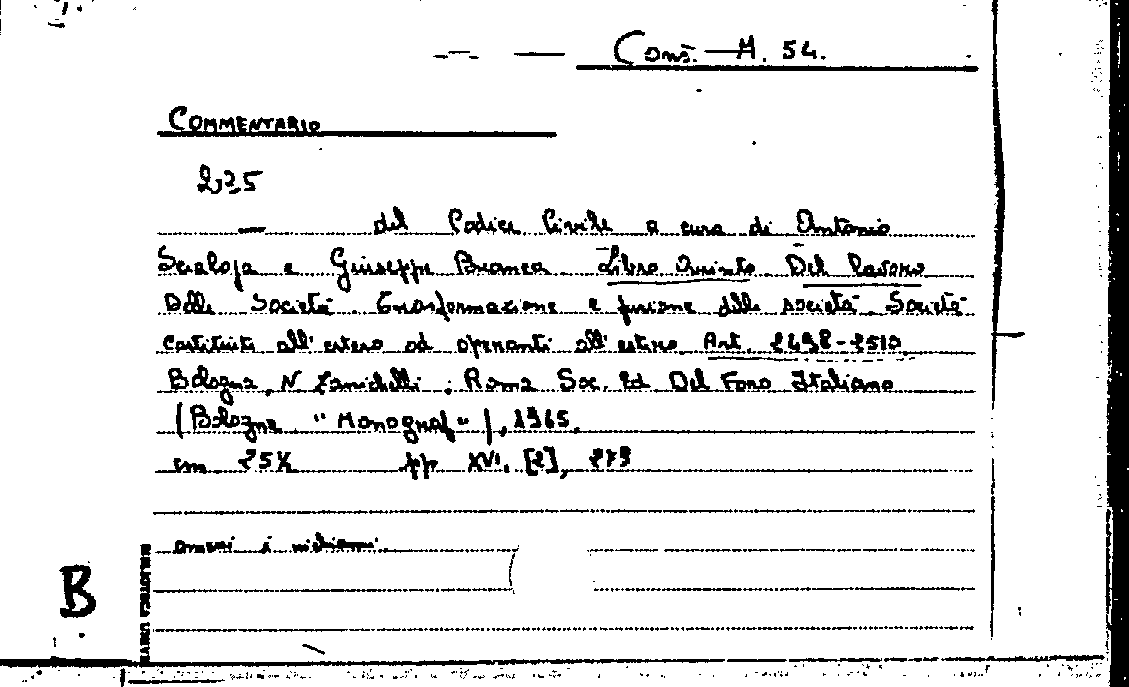 Cons. H. 54.
COMMENTARIO
275
— del Codice Civile a cura di Antonio
Scialoja e Giuseppe Branca Libro Quinto Del Lavoro
Delle Società. Trasformazione e fusione delle società. Società
costituite all'estero od operanti all'estero. Art. 2498-2510
Bologna, N. Zanichelli; Roma Soc. Ed. Del Foro Italiano
(Bologna "Monograf"), 1965.
cm 25X pp XVI. [2], 279
omessi i richiami.
B
BIBLIOTECA